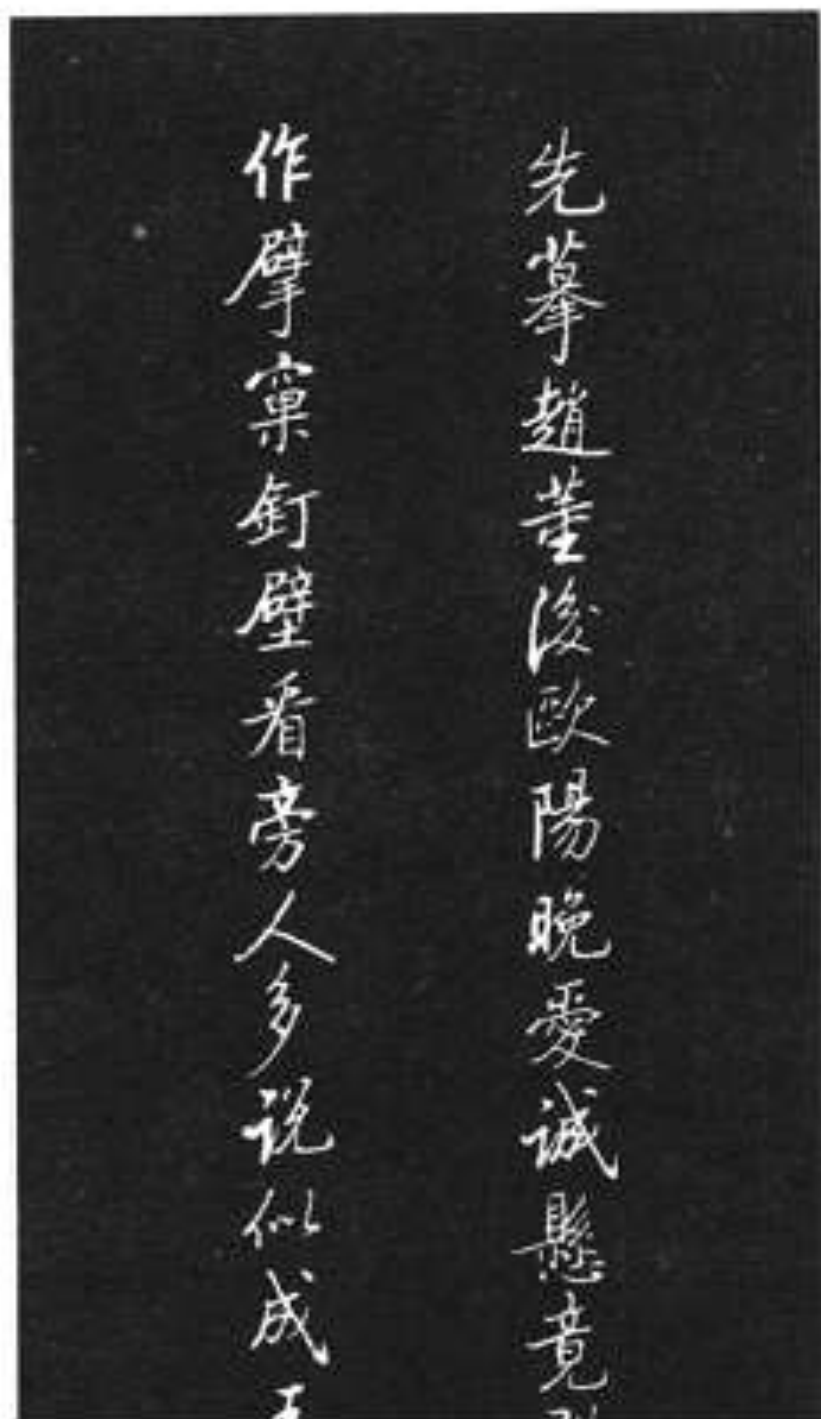 先摹趙董後歐陽晚愛誠懸竟
作擘窠釘壁看旁人多說似成